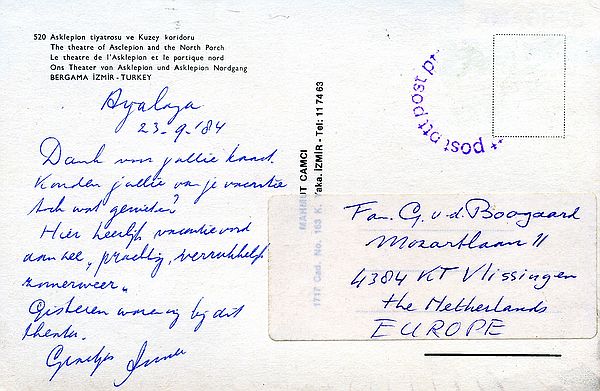 520 Asklepion tiyatrosu ve Kuzey koridoru
The theatre of Asclepion and the North Porch
Le theatre de l'Asklepion et le portique nord
Ons Theater von Asklepion und Asklepion Nordgang
BERGAMA İZMİR - TURKEY
23-9-'84
Dank voor jullie kaart.
Konden jullie van je vacantie
toch wat genieten?
Hier heerlijk vacantieoord
aan zee, prachtig, verrukkelijk
zomerweer.
Gisteren waren wij bij dit
theater.
Groetjes
MAHMUT CAMCI
1717 Cad. No. 163 K. Yaka. İZMİR - Tel: 11 74 63
post ptt post
Fam. G. v.d. Boogaard
Mozartlaan 11
4384 KT Vlissingen
the Netherlands
EUROPE